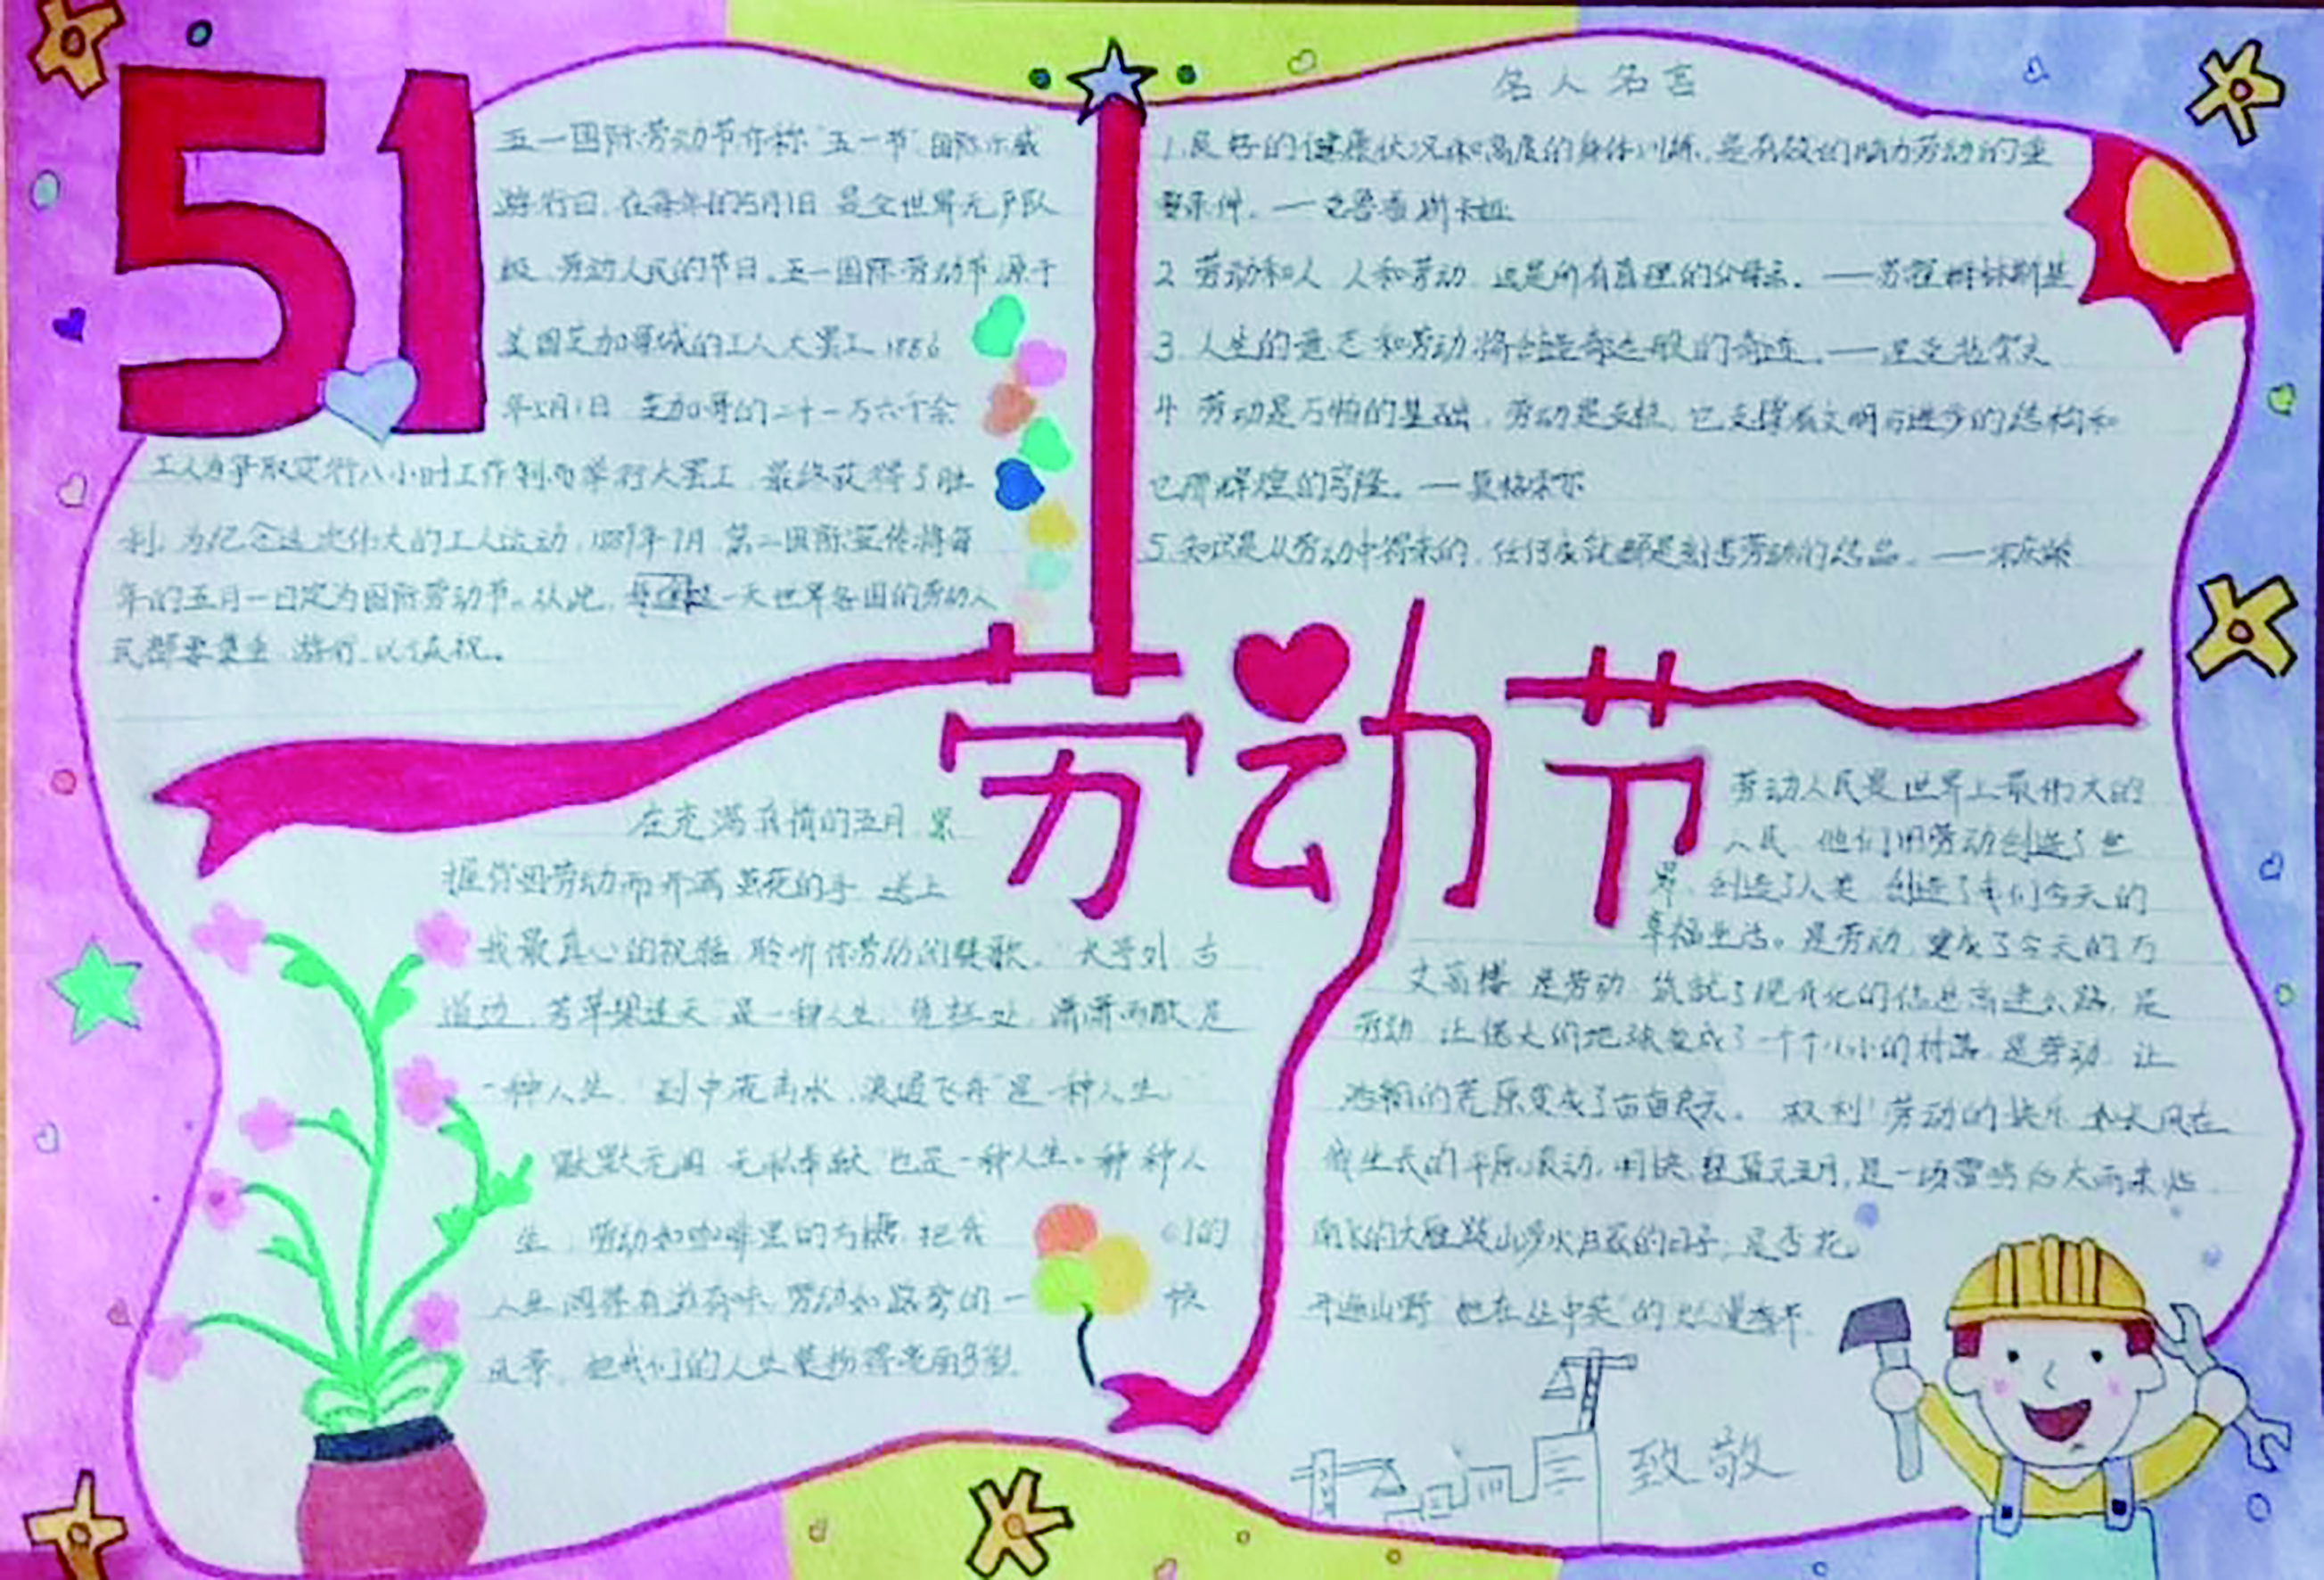 51
五一国际劳动节亦称"五一节"国际示威
游行日,在每年的5月1日 是全世界无产队
级、劳动人民的节日。五一国际劳动节源于
美国芝加哥城的工人大罢工 1886
年5月1日 芝加哥的二十一万六千余
工人为争取实行八小时工作制而举行大罢工,最终获得了胜
利,为纪念这次伟大的工人运动,1889年7月 第二国际宣传将每
年的五月一日定为国际劳动节。从此,这一天世界各国的劳动人
民都要集会 游行,以庆祝。
名人名言
1.良好的健康状况和高度的身体训练,是有效的脑力劳动的重
要条件。——克鲁普斯卡娅
2 劳动和人 人和劳动 这是所有真理的父母亲。——苏霍姆林斯基
3 人生的意志和劳动将创造奇迹般的奇迹。——涅克拉索夫
4 劳动是万物的基础,劳动是支柱,它支撑着文明与进步的结构和
它那辉煌的穹隆。——英格索尔
5.知识是从劳动中得来的,任何成就都是刻苦劳动的结晶。——宋庆龄
劳动节
在充满真情的五月,紧
握你因劳动而开满茧花的手 送上
我最真心的祝福 聆听你劳动的赞歌。"长亭外,古
道边,芳草碧连天"是一种人生,凭栏处,潇潇雨歇是
一种人生,"到中流击水,浪遏飞舟"是一种人生
默默无闻 无私奉献 也是一种人生。种种人
生,劳动如咖啡里的方糖,把我们的
人生调得有滋有味,劳动如路旁的一快
风景,把我们的人生装扮得亮丽多彩
劳动人民是世界上最伟大的
人民 他们用劳动创造了世
界,创造了人类 创造了我们今天的
幸福生活。是劳动,建成了今天的万
丈高楼 是劳动 筑就了现代化的信息高速公路,是
劳动,让偌大的地球变成了一个个小小的村落,是劳动,让
浩瀚的荒原变成了亩亩良田。权利!劳动的快乐 如大风在
我生长的平原滚动,明快 轻盈又五月,是一场雷鸣的大雨来临
南飞的大雁跋山涉水归家的日子,是杏花
开遍山野"她在丛中笑"的烂漫春开
致敬